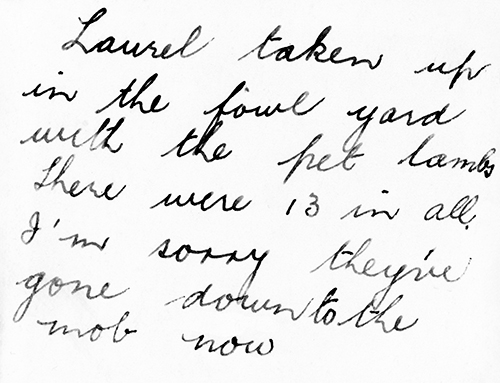 Laurel taken up
in the fowl yard
with the pet lambs
There were 13 in all.
I'm sorry they've
gone down to the
mob now